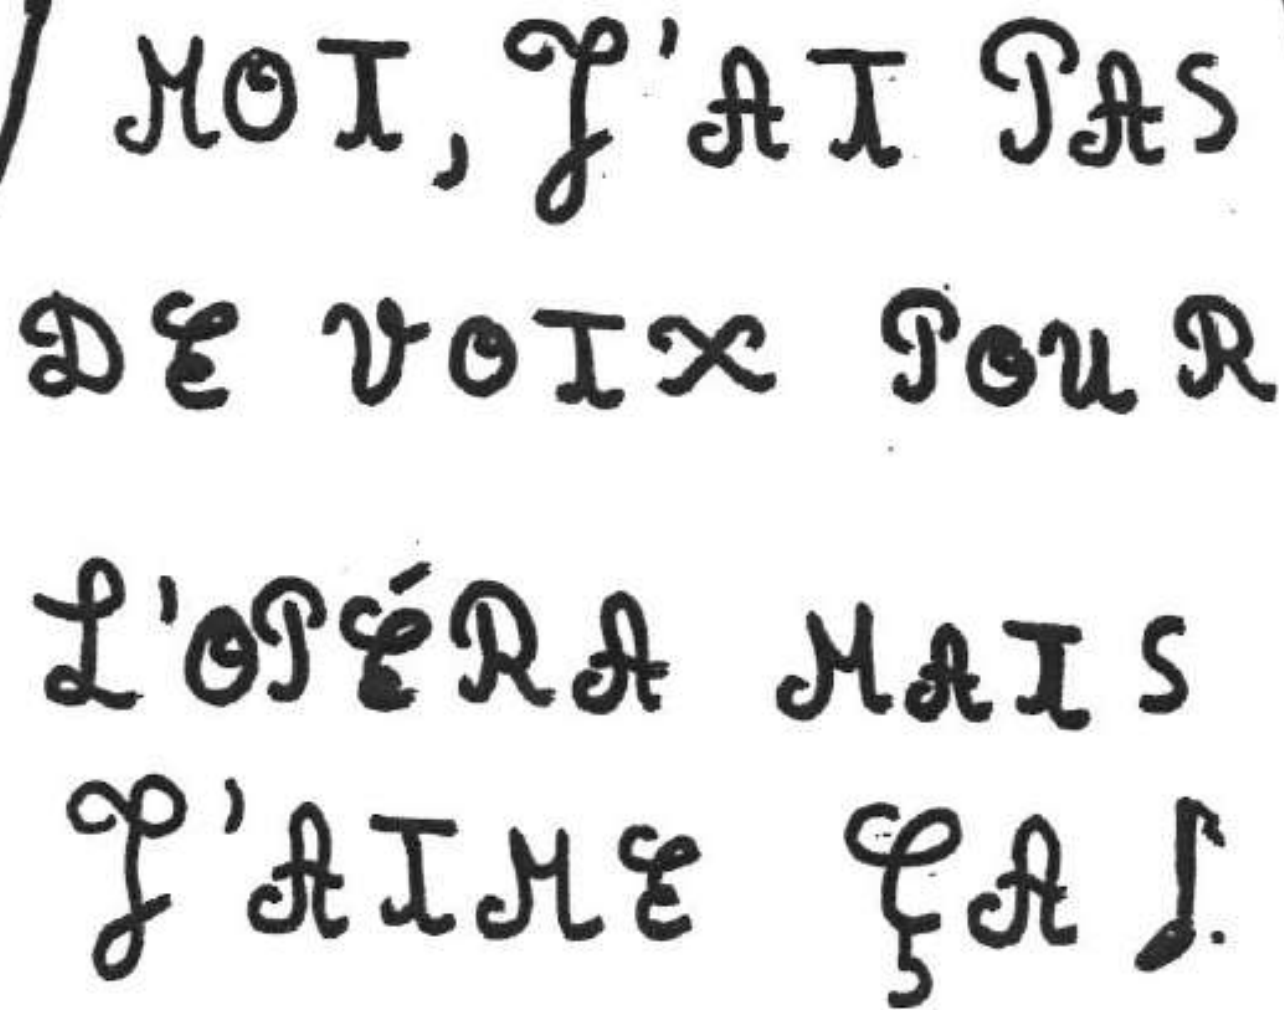 MOI, J'AI PAS
DE VOIX POUR
L'OPÉRA MAIS
J'AIME ÇA ♪.